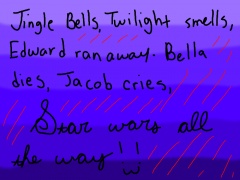 Jingle Bells, Twilight smells,
Edward ran away. Bella
dies, Jacob cries,
Star wars all
the way!!